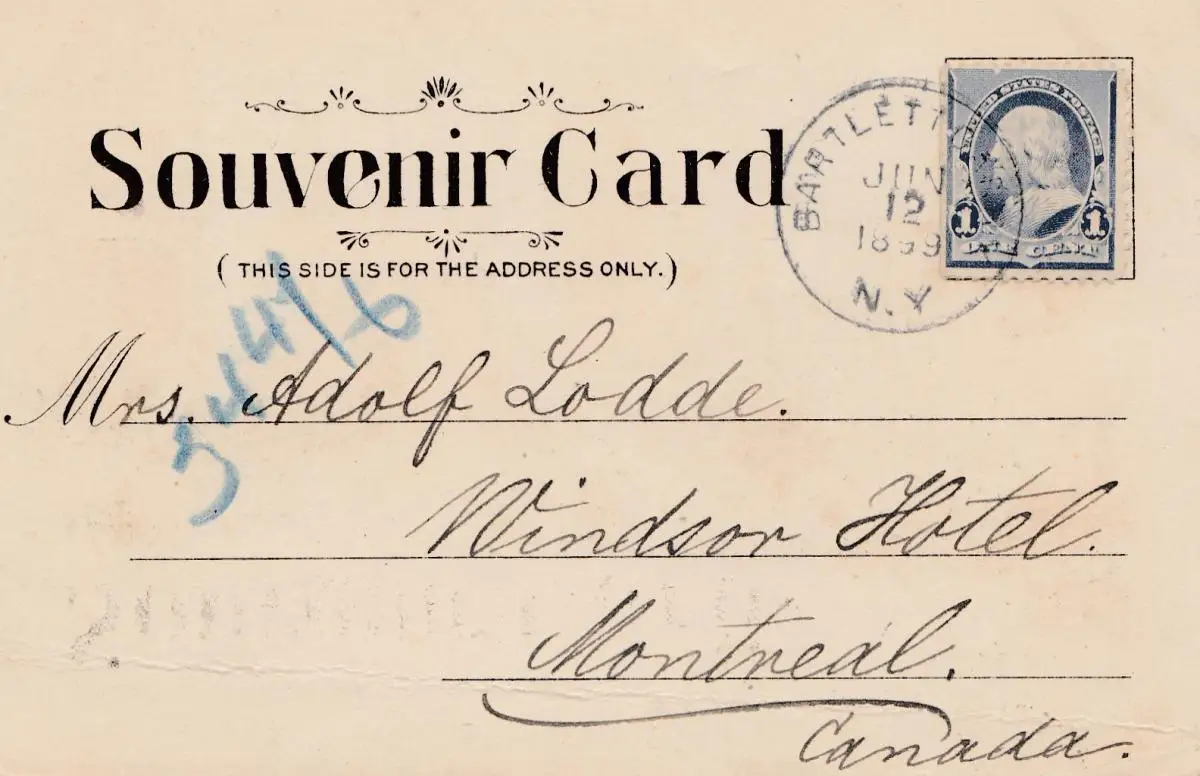 Souvenir Card
(THIS SIDE IS FOR THE ADDRESS ONLY.)
BARTLETT
JUN
12
1899
N.Y
UNITED STATES POSTAGE
1 1
ONE CENT
Mrs. Adolf Lodde.
Windsor Hotel.
Montreal.
Canada.